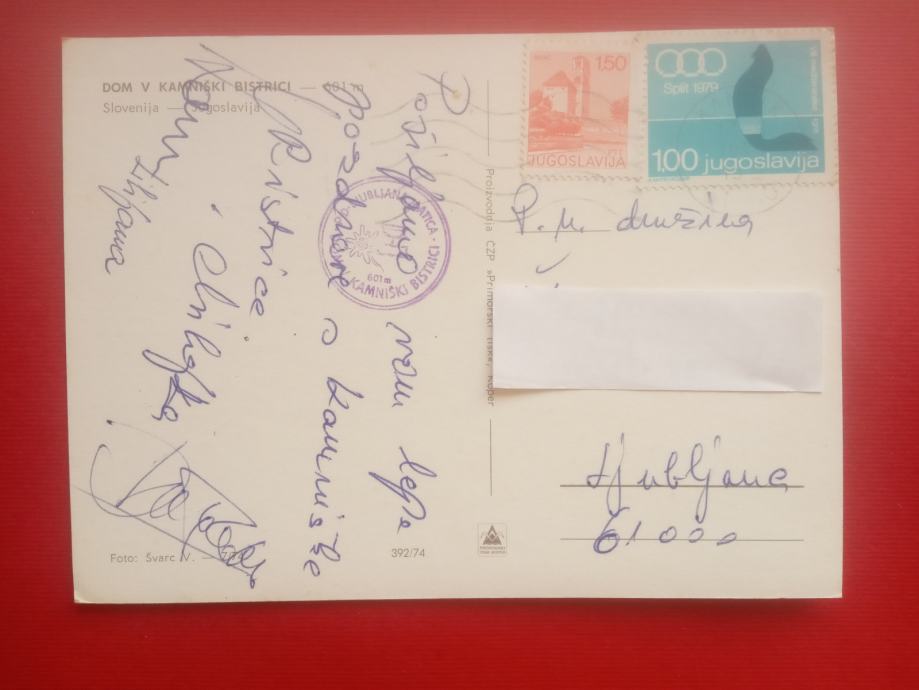 DOM V KAMNIŠKI BISTRICI — 601 m
Slovenija — Jugoslavija
Pošiljamo vam lepe
pozdrave s Kamniške
Bistrice
LJUBLJANA MATICA
KAMNIŠKI BISTRICI
601 m
Foto: Švarc V. —
392/74
Proizvodnja ČZP »Primorski tisk«, Koper
1,50
JUGOSLAVIJA
Split 1979
1,00 jugoslavija
P. n. družina
Ljubljana
61000